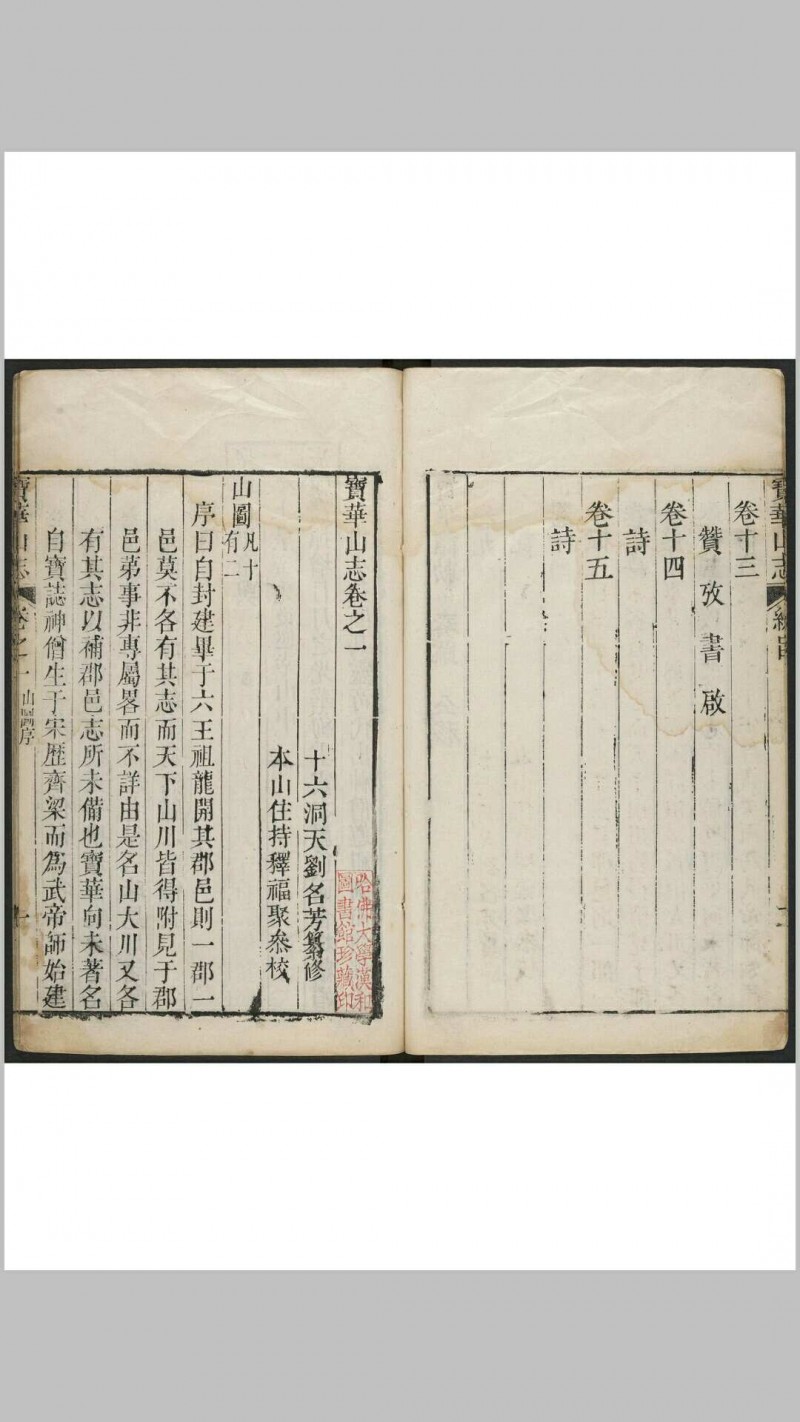 寶華山志
卷十三
贊攷書啟
卷十四
詩
卷十五
詩
寶華山志卷之一
十六洞天劉名芳纂修
本山住持釋福聚叅校
山圖凡十有二
序曰自封建畢于六王祖龍開其郡邑則一郡一
邑莫不各有其志而天下山川皆得附見于郡
邑苐事非專屬畧而不詳由是名山大川又各
有其志以補郡邑志所未備也寶華向未著名
自寶誌神僧生于宋歷齊梁而爲武帝師始建
寶華山志 卷之一 山圖序 一
哈佛大學漢和
圖書館珍藏印